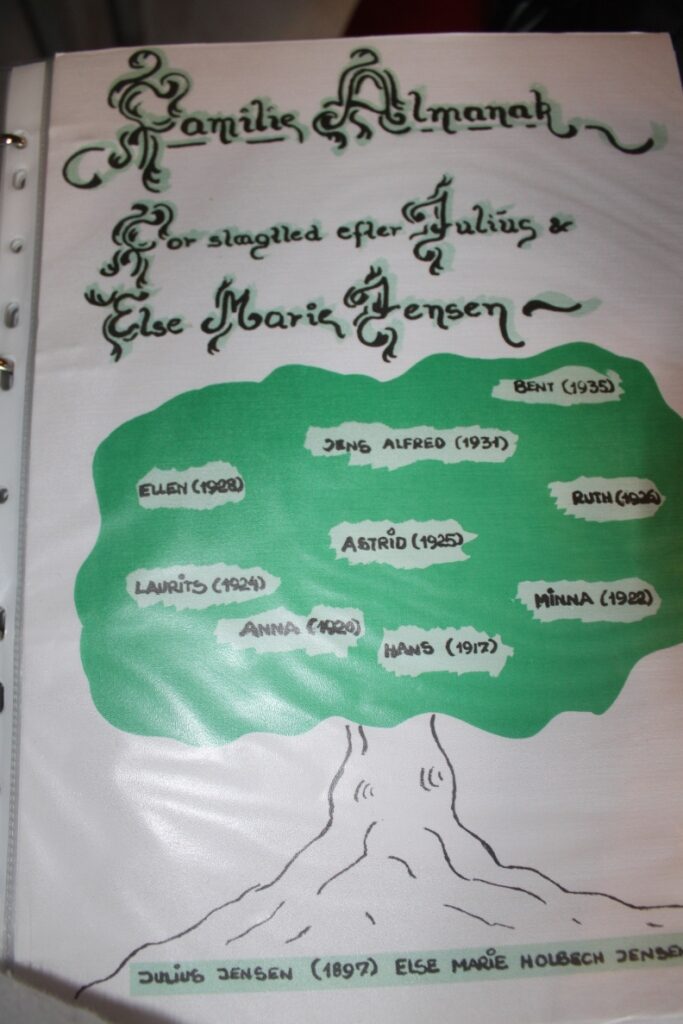 Familie Almanak
For slægtled efter Julius &
Else Marie Jensen
BENT (1935)
JENS ALFRED (1931)
ELLEN (1928)
RUTH (1926)
ASTRID (1925)
LAURITS (1924)
MINNA (1922)
ANNA (1920)
HANS (1917)
JULIUS JENSEN (1897) ELSE MARIE HOLBECH JENSEN